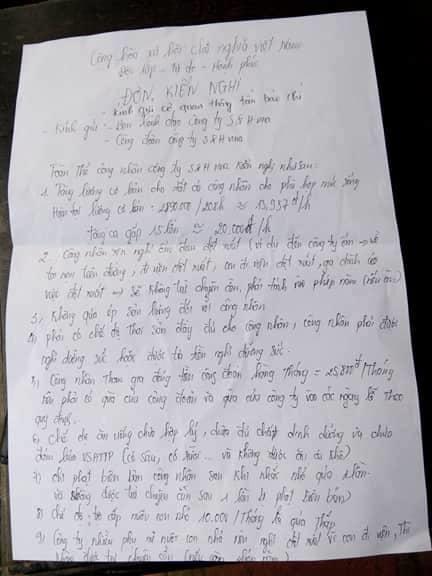 Cộng hòa xã hội chủ nghĩa Việt Nam
Độc lập - Tự do - Hạnh phúc
ĐƠN KIẾN NGHỊ
- Kính gửi cơ quan thông tấn báo chí
- Kính gửi: - Ban lãnh đạo công ty S&H vina
- Công đoàn công ty S&H vina
Toàn thể công nhân công ty S&H vina kiến nghị như sau:
1. Tăng lương cơ bản cho tất cả công nhân cho phù hợp mức sống
Hiện tại lương cơ bản = /208h ≈ 13.937đ/h
tăng ca gấp 1.5 lần ≈ 20.000đ/h
2. Công nhân xin nghỉ ốm đau đột xuất (ví dụ đến công ty ốm → về
tai nạn trên đường, đi viện đột xuất, con đi viện đột xuất, gia đình có
việc đột xuất → sẽ không trừ chuyên cần, phải tính vào phép năm (nếu còn)
3, Không quá ép sản lượng đối với công nhân
4, phải có chế độ thai sản đầy đủ cho công nhân, công nhân phải được
nghỉ dưỡng sức hoặc được trả tiền nghỉ dưỡng sức.
5, Công nhân tham gia đóng tiền công đoàn hàng tháng = đ/tháng
nên phải có quà của công đoàn và quà của công ty vào các ngày lễ theo
quy định.
6, Chế độ ăn uống chưa hợp lý, chưa đủ chất dinh dưỡng và chưa
đảm bảo VSATTP (có sâu, có ruồi ... và không được ăn no)
7) chỉ phạt biên bản công nhân sau khi nhắc nhở quá lần.
và không được trừ chuyên cần sau 1 lần bị phạt biên bản)
8) Chế độ trợ cấp nuôi con nhỏ 10.000/tháng là quá thấp
9) Công ty nhiều phụ nữ nuôi con nhỏ nên nghỉ đột xuất vì con đi viện, thì
không được trừ chuyên cần (nếu còn phép năm)